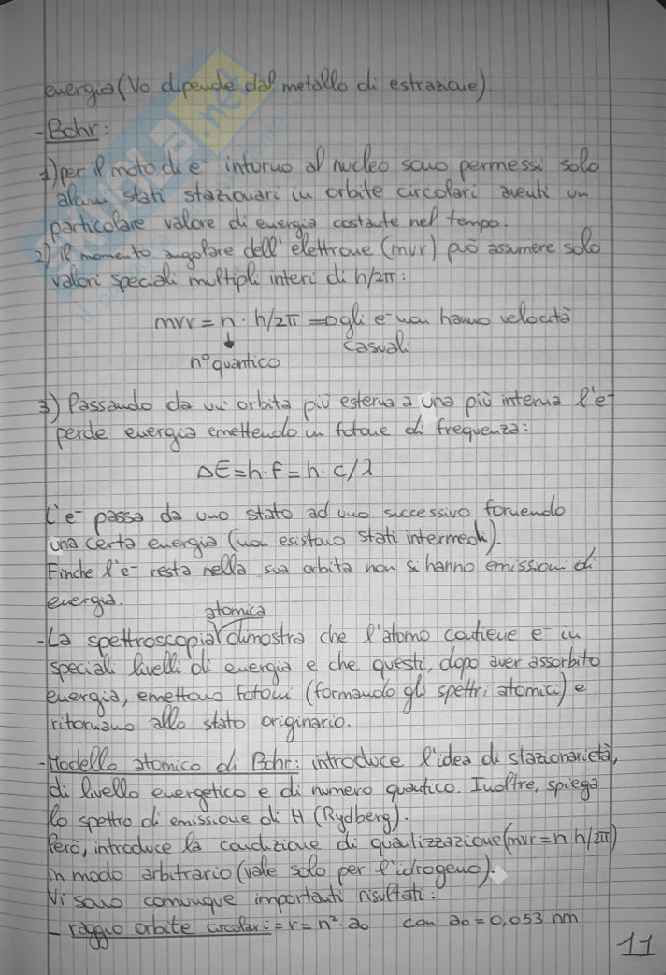 energia (Vo dipende dal metallo di estrazione)
- Bohr:
1) per il moto di e⁻ intorno al nucleo sono permessi solo
alcuni stati stazionari in orbite circolari aventi un
particolare valore di energia costante nel tempo.
2) il momento angolare dell'elettrone (mvr) può assumere solo
valori speciali multipli interi di h/2π:
mvr = n · h/2π ⇒ gli e⁻ non hanno velocità
n° quantico casuali
3) Passando da un'orbita più esterna a una più interna l'e⁻
perde energia emettendo un fotone di frequenza:
ΔE = h·f = h·c/λ
L'e⁻ passa da uno stato ad uno successivo fornendo
una certa energia (non esistono stati intermedi).
Finche l'e⁻ resta nella sua orbita non si hanno emissioni di
energia.
- La spettroscopia atomica dimostra che l'atomo contiene e⁻ in
speciali livelli di energia e che questi, dopo aver assorbito
energia, emettono fotoni (formando gli spettri atomici) e
ritornano allo stato originario.
- Modello atomico di Bohr: introduce l'idea di stazionarietà,
di livello energetico e di numero quantico. Inoltre, spiega
lo spettro di emissione di H (Rydberg).
Però, introduce la condizione di quantizzazione (mvr = n h/2π)
in modo arbitrario (vale solo per l'idrogeno).
Vi sono comunque importanti risultati:
- raggio orbite circolari: = r = n² · a₀ con a₀ = 0,053 nm
11